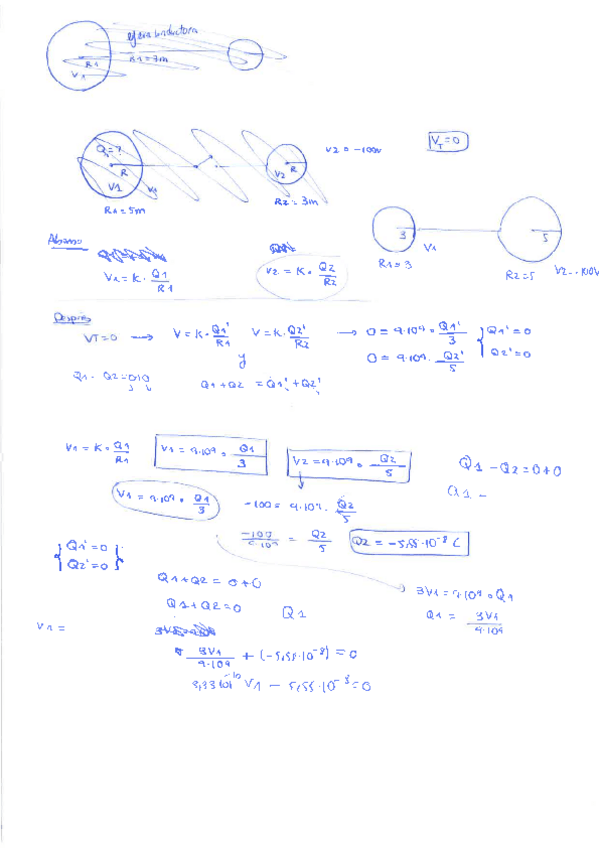 esfera inductora
R1
R1=3m
V1
Q1=?
R
V1
V2
R
V2=-100V
VT=0
R1=5m
R2=3m
3
V1
5
R1=3
R2=5
Ahora
V1=K·Q1/R1
V2=K·Q2/R2
Después
VT=0 → V=K·Q1'/R1 V=K·Q2'/R2 → 0=9·10⁹·Q1'/3 {Q1'=0
y 0=9·10⁹·Q2'/5 Q2'=0
Q1+Q2=Q1'+Q2'
V1=K·Q1/R1 V1=9·10⁹·Q1/3 V2=9·10⁹·Q2/5 Q1-Q2=0+0
V1=9·10⁹·Q1/3 -100=9·10⁹·Q2/5 Q1-
-100/9·10⁹=Q2/5 Q2=-5,55·10⁻⁸ C
{Q1'=0
Q2'=0}
Q1+Q2=0+0 3V1=9·10⁹·Q1
Q1+Q2=0 Q1 Q1=3V1/9·10⁹
V1=
3V1/9·10⁹+(-5,55·10⁻⁸)=0
V1-5,55·10⁻⁸=0